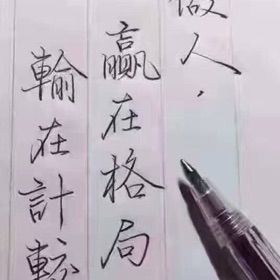 做人，
赢在格局
輸在計較